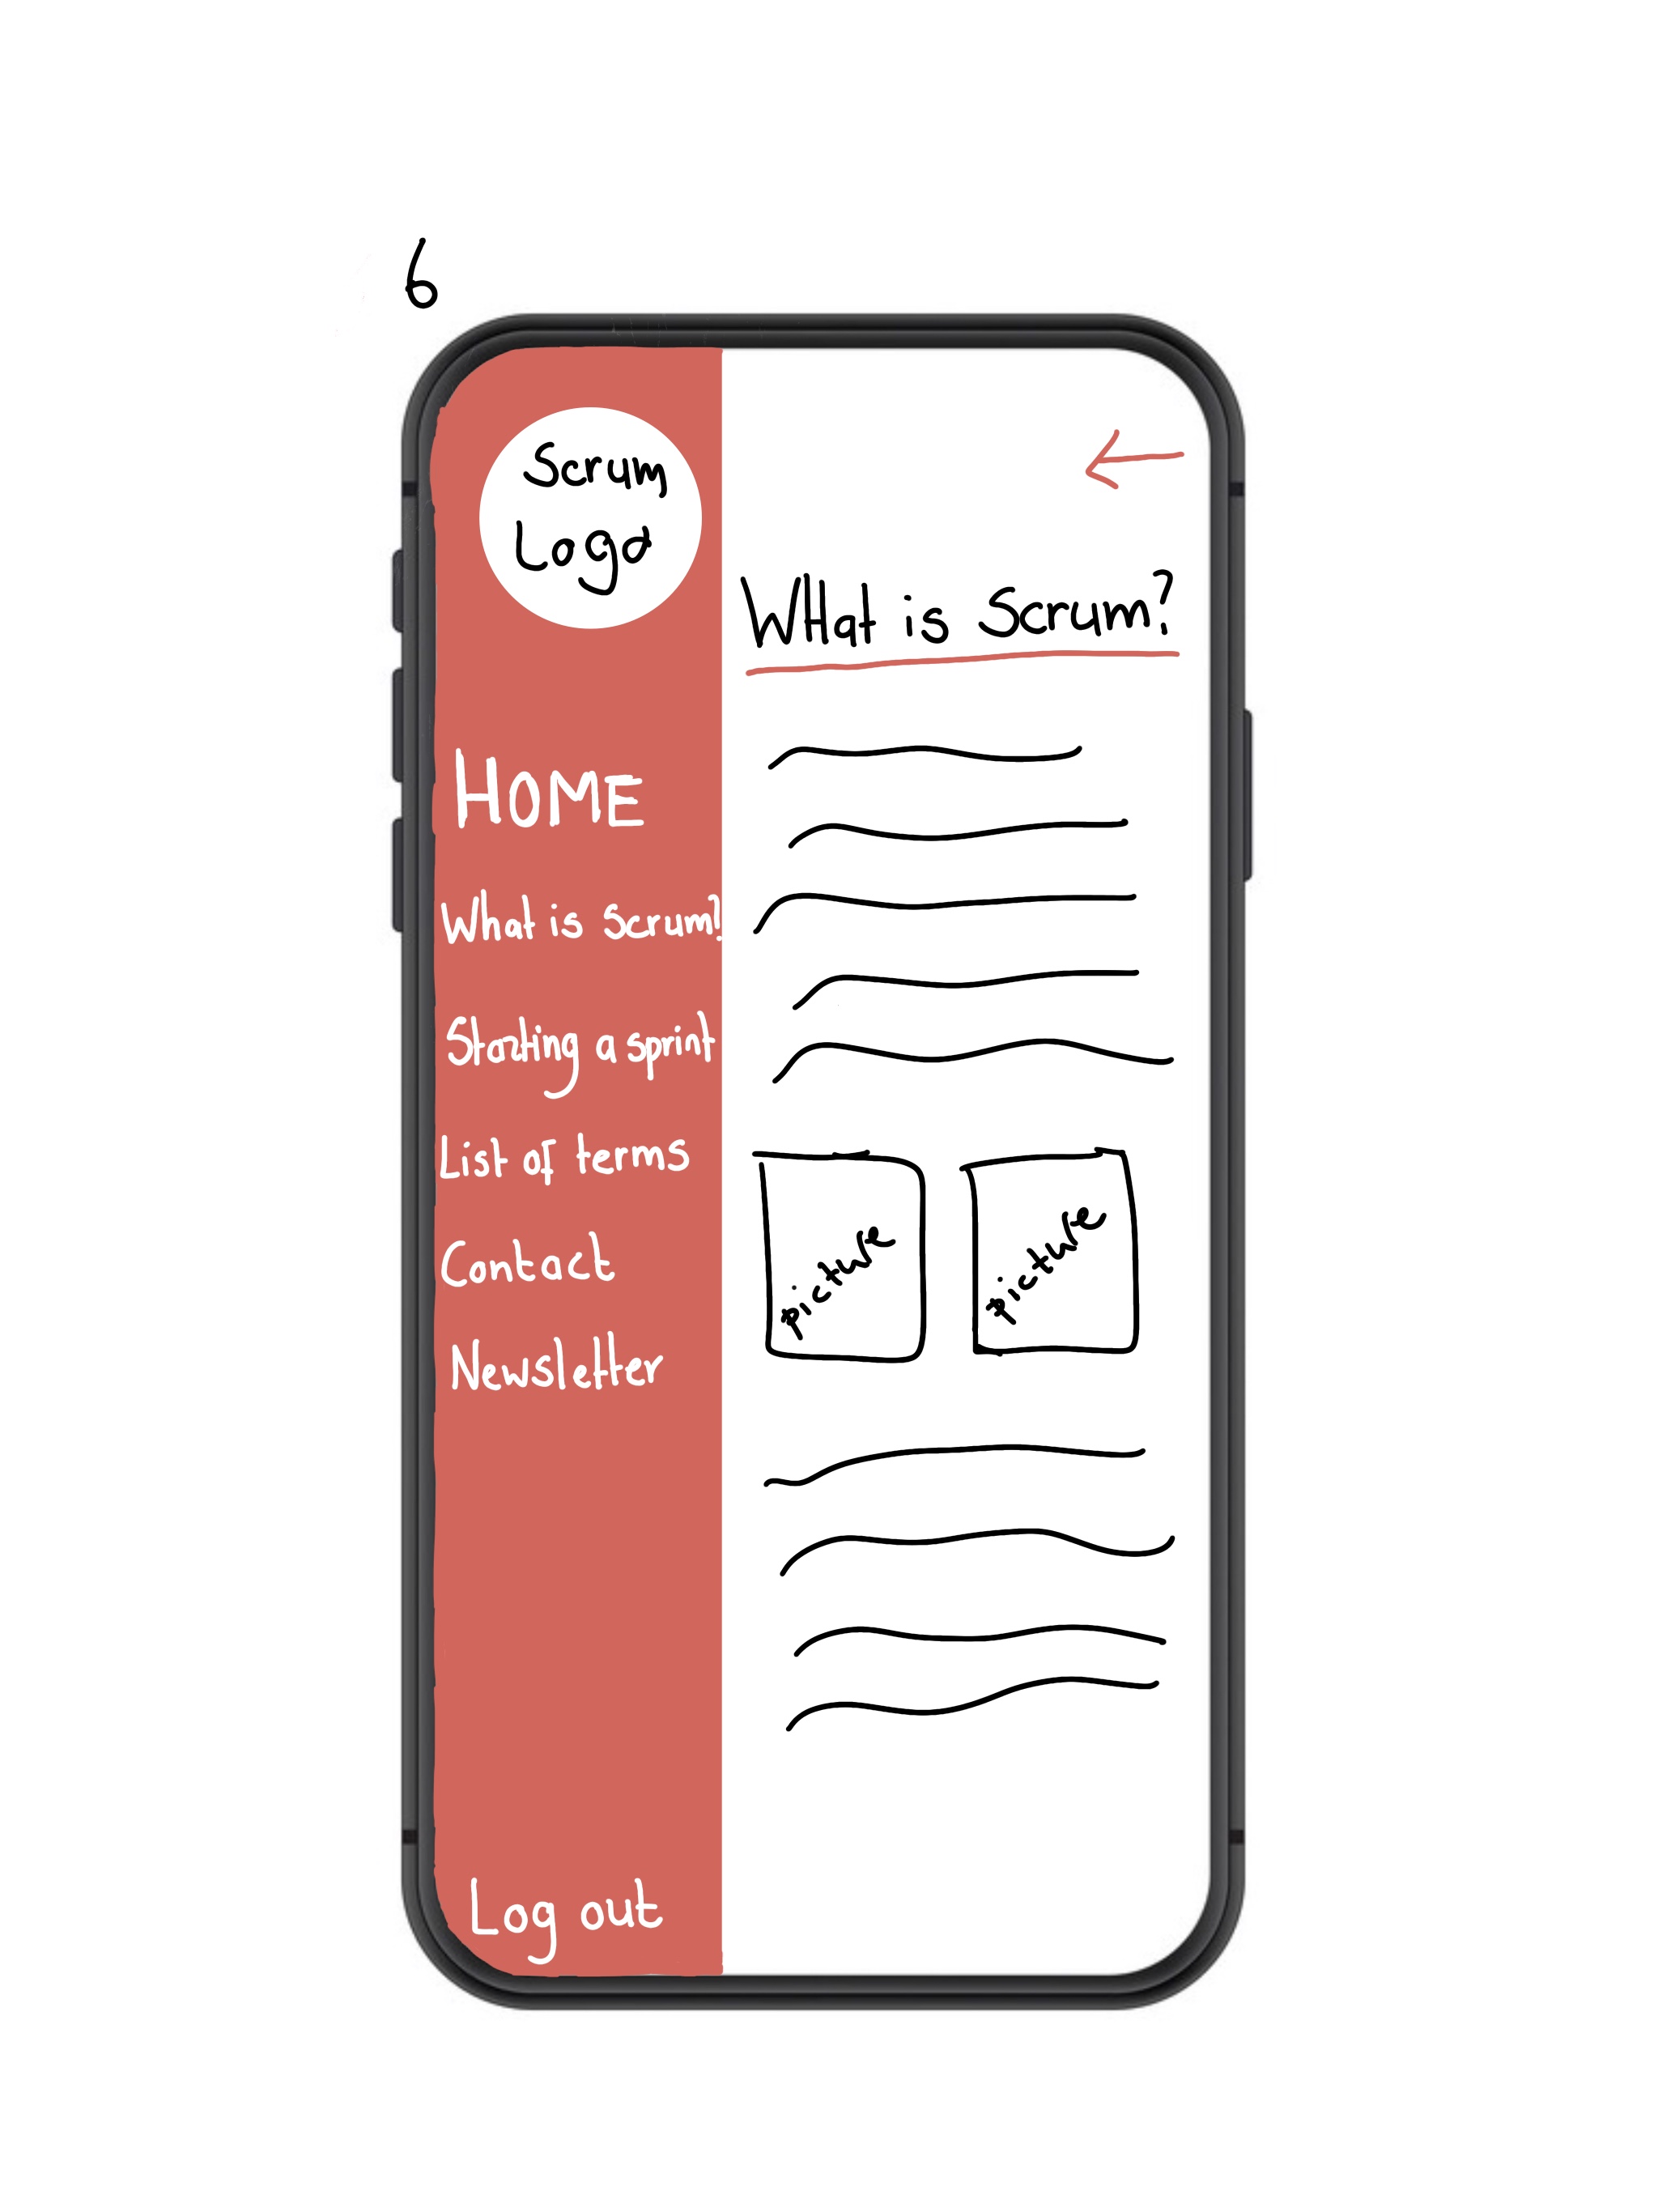 6
Scrum
Logo
HOME
What is Scrum?
Starting a sprint
List of terms
Contact
Newsletter
Log out
WHat is Scrum?
picture
picture